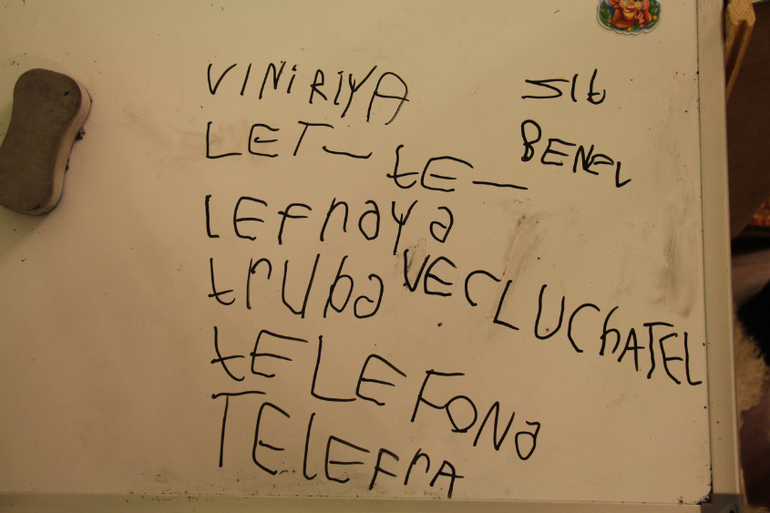 VINIRIYA
SIt
LET—tE—
BENEL
LEFnaya
truba VECLUChATEL
tELEFONa
TELEFnA